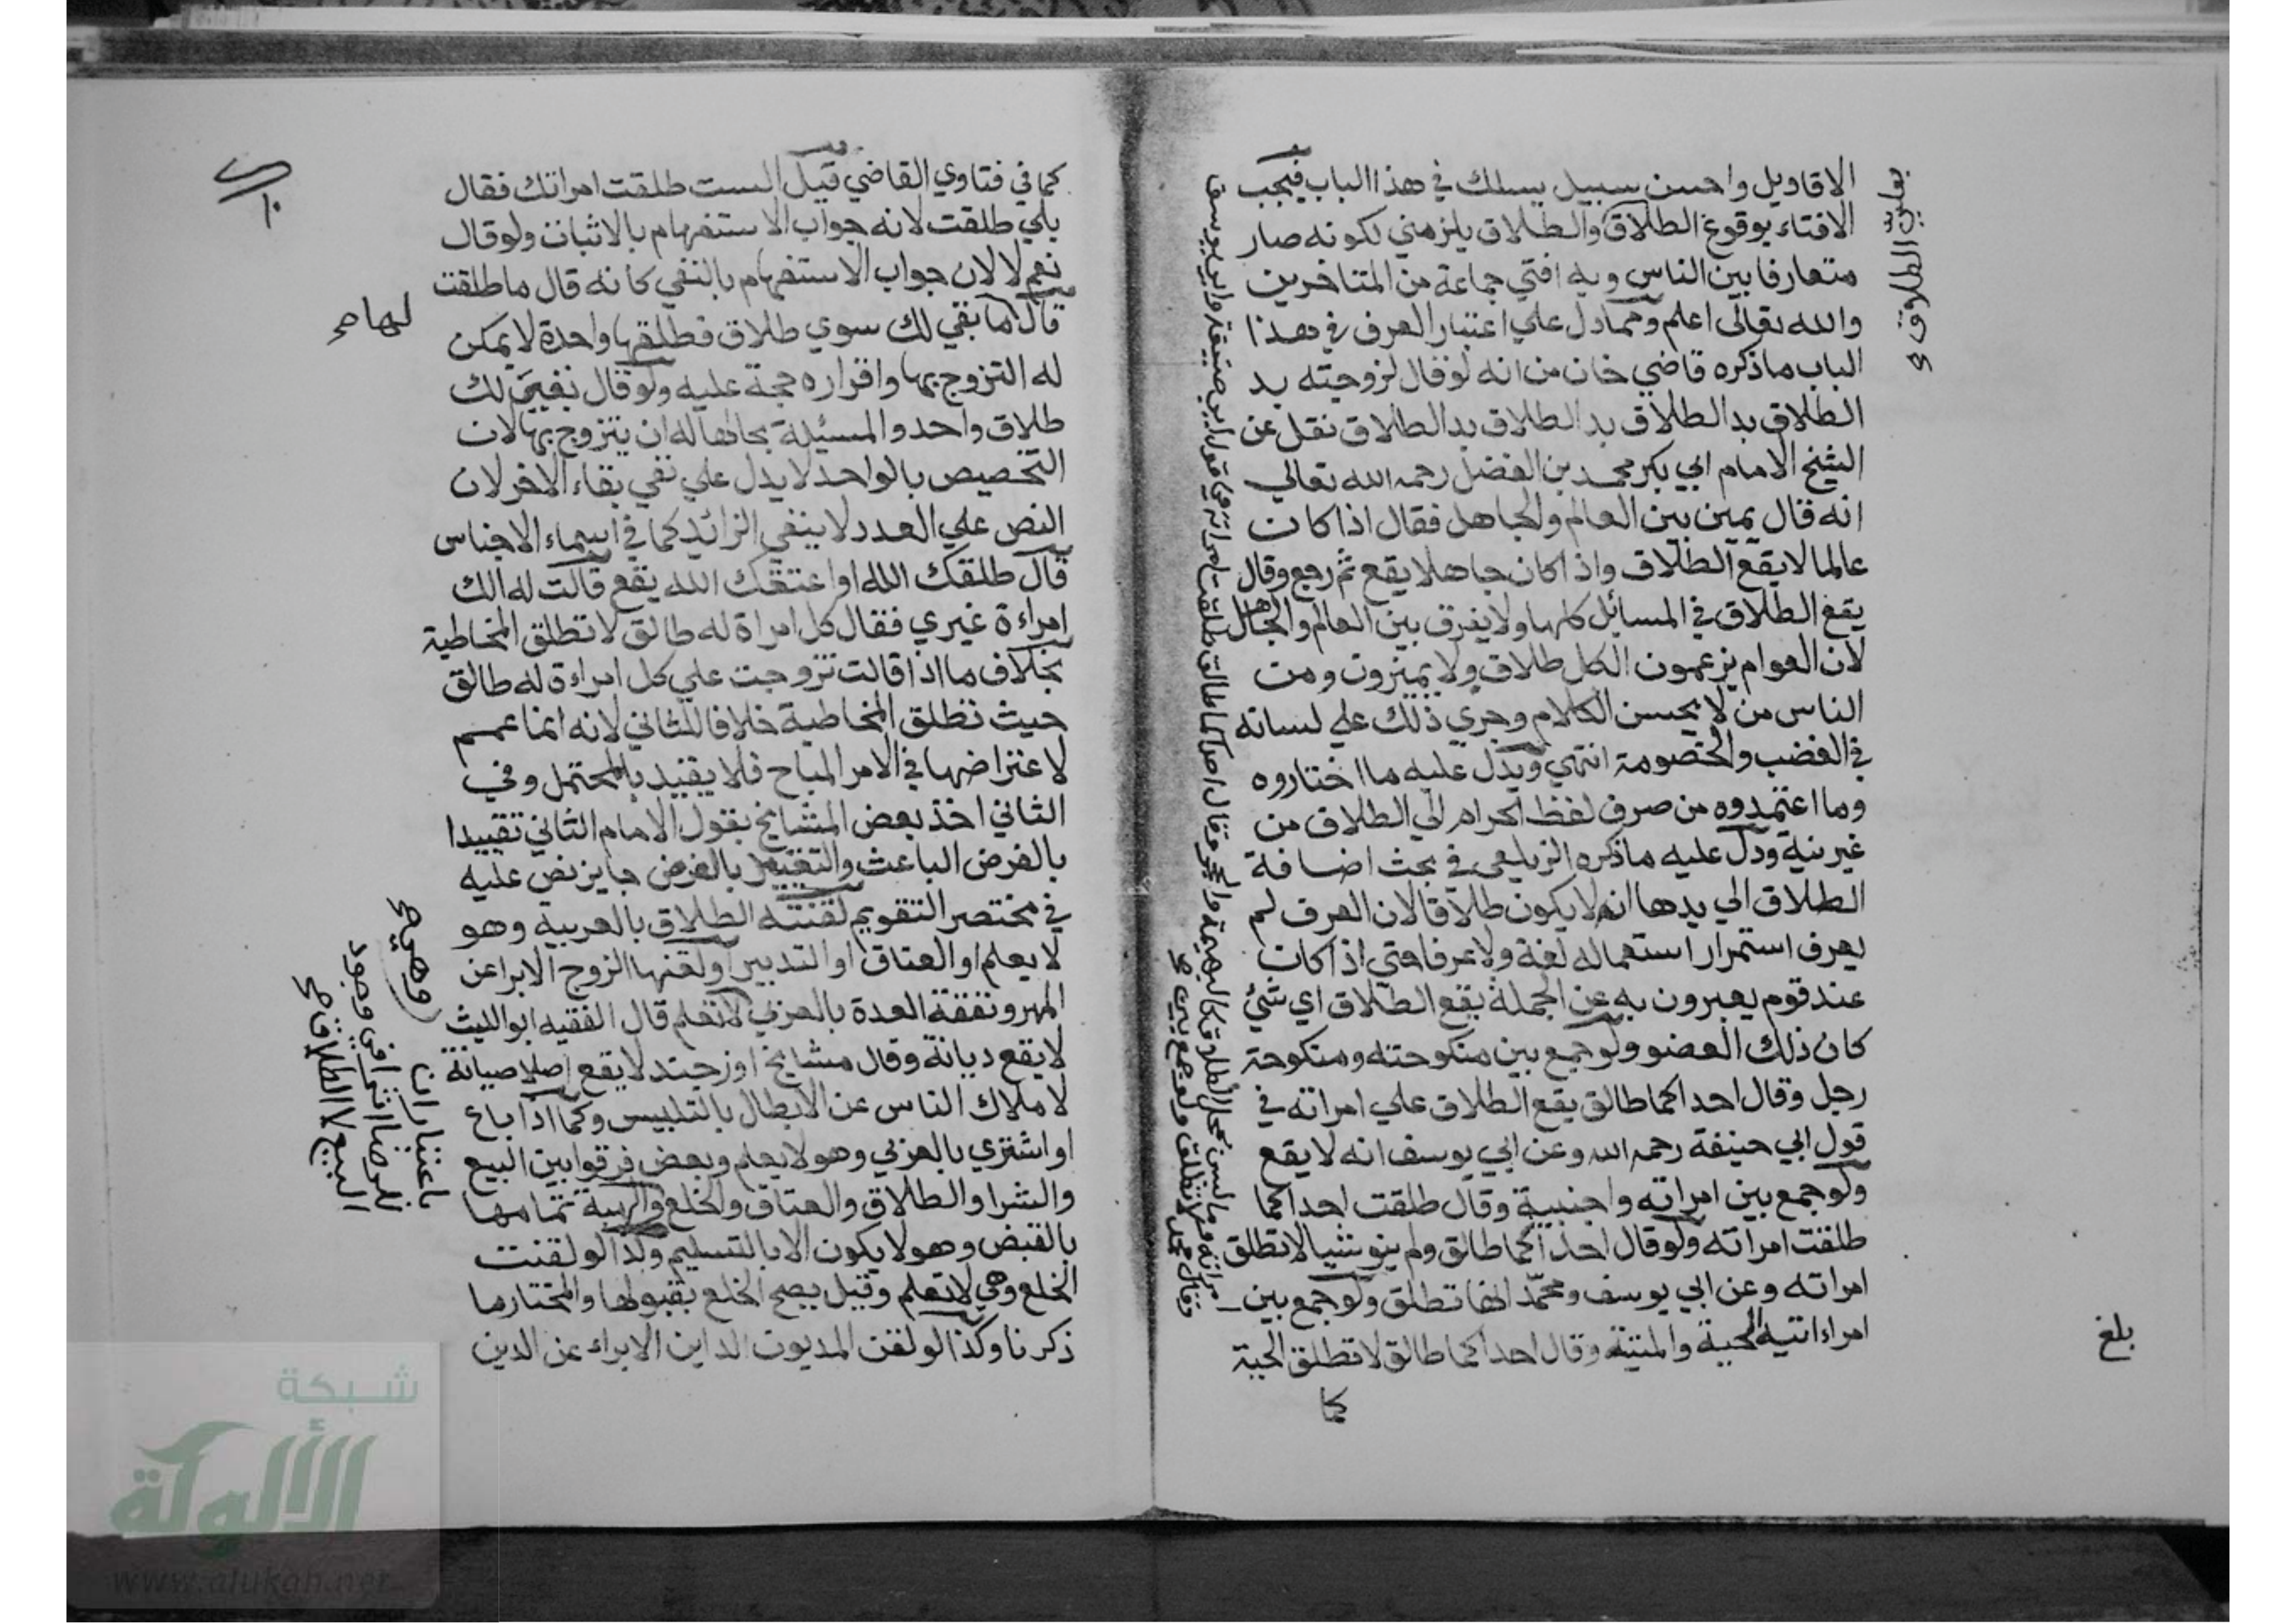 الاقاويل واحسن سبيل يسلك في هذا الباب فيجب
الافتاء بوقوع الطلاق والطلاق يلزمني لكونه صار
متعارفا بين الناس وبه افتي جماعة من المتاخرين
والله تعالى اعلم ومما دل علي اعتبار العرف في هذا
الباب ما ذكره قاضي خان من انه لو قال لزوجته بد
الطلاق بد الطلاق بد الطلاق بد الطلاق نقل عن
الشيخ الامام ابي بكر محمد بن الفضل رحمه الله تعالي
انه قال يمين بين العالم والجاهل فقال اذا كان
عالما لا يقع الطلاق واذا كان جاهلا يقع ثم رجع وقال
يقع الطلاق في المسائل كلها ولا يفرق بين العالم والجاهل
لان العوام يزعمون الكل طلاق ولا يميزون ومن
الناس من لا يحسن الكلام وجري ذلك علي لسانه
في الغضب والخصومة انتهي ويدل عليه ما اختاروه
وما اعتمدوه من صرف لفظ الحرام الي الطلاق من
غير نية ودل عليه ما ذكره الزيلعي في بحث اضافة
الطلاق الي يدها انه لا يكون طلاقا لان العرف لم
يعرف استمرار استعماله لغة ولا عرفا حتي اذا كان
عند قوم يعبرون به عن الجملة يقع الطلاق اي شئ
كان ذلك العضو ولو جمع بين منكوحته ومنكوحة
رجل وقال احداكما طالق يقع الطلاق علي امراته في
قول ابي حنيفة رحمه الله وعن ابي يوسف انه لا يقع
ولو جمع بين امراته واجنبية وقال طلقت احداكما
طلقت امراته ولو قال احداكما طالق ولم ينو شيا لا تطلق
امراته وعن ابي يوسف ومحمد انها تطلق ولو جمع بين
امراءاتيه الحية والميتة وقال احداكما طالق لا تطلق الحية
كما
بلغ
كما في فتاوي القاضي قيل الست طلقت امراتك فقال
بلي طلقت لانه جواب الاستفهام بالاثبات ولو قال
نعم لا لان جواب الاستفهام بالنفي كانه قال ما طلقت
قال ما بقي لك سوي طلاق فطلقها واحدة لا يمكن
لها صح
له التزوج بها واقراره حجة عليه ولو قال بقي لك
طلاق واحد والمسئلة بحالها له ان يتزوج بها لان
التخصيص بالواحد لا يدل علي نفي بقاء الاخر لان
النص علي العدد لا ينفي الزائد كما في اسماء الاجناس
قال طلقك الله او اعتقك الله يقع قالت له الك
امراءة غيري فقال كل امراة له طالق لا تطلق المخاطبة
بخلاف ما اذا قالت تزوجت علي كل امراءة له طالق
حيث تطلق المخاطبة خلافا للثاني لانه انما عمم
لاعتراضها في الامر المباح فلا يقيد بالمحتمل وفي
الثاني اخذ بعض المشايخ بقول الامام الثاني تقييدا
بالغرض الباعث والتقييد بالغرض جايز نص عليه
في مختصر التقويم لقنته الطلاق بالعربية وهو
لا يعلم او العتاق او التدبير او لقنها الزوج الابرا عن
المهر ونفقة العدة بالعربي لا تعلم قال الفقيه ابو الليث
وهي صح
لا يقع ديانة وقال مشايخ اوزجند لا يقع اصلا صيانة
لاملاك الناس عن الابطال بالتلبيس وكما اذا باع
او اشتري بالعربي وهو لا يعلم وبعض فرقوا بين البيع
والشرا والطلاق والعتاق والخلع والهبة تمامها
باعتبار ان
للرضا اثرا في وجود
البيع لا الطلاق صح
بالقبض وهو لا يكون الا بالتسليم وكذا لو لقنت
الخلع وهي لا تعلم وقيل يصح الخلع بقبولها والمختار ما
ذكرنا وكذا لو لقن المديون الداين الابراء عن الدين
شبكة
الألوكة
www.alukah.net